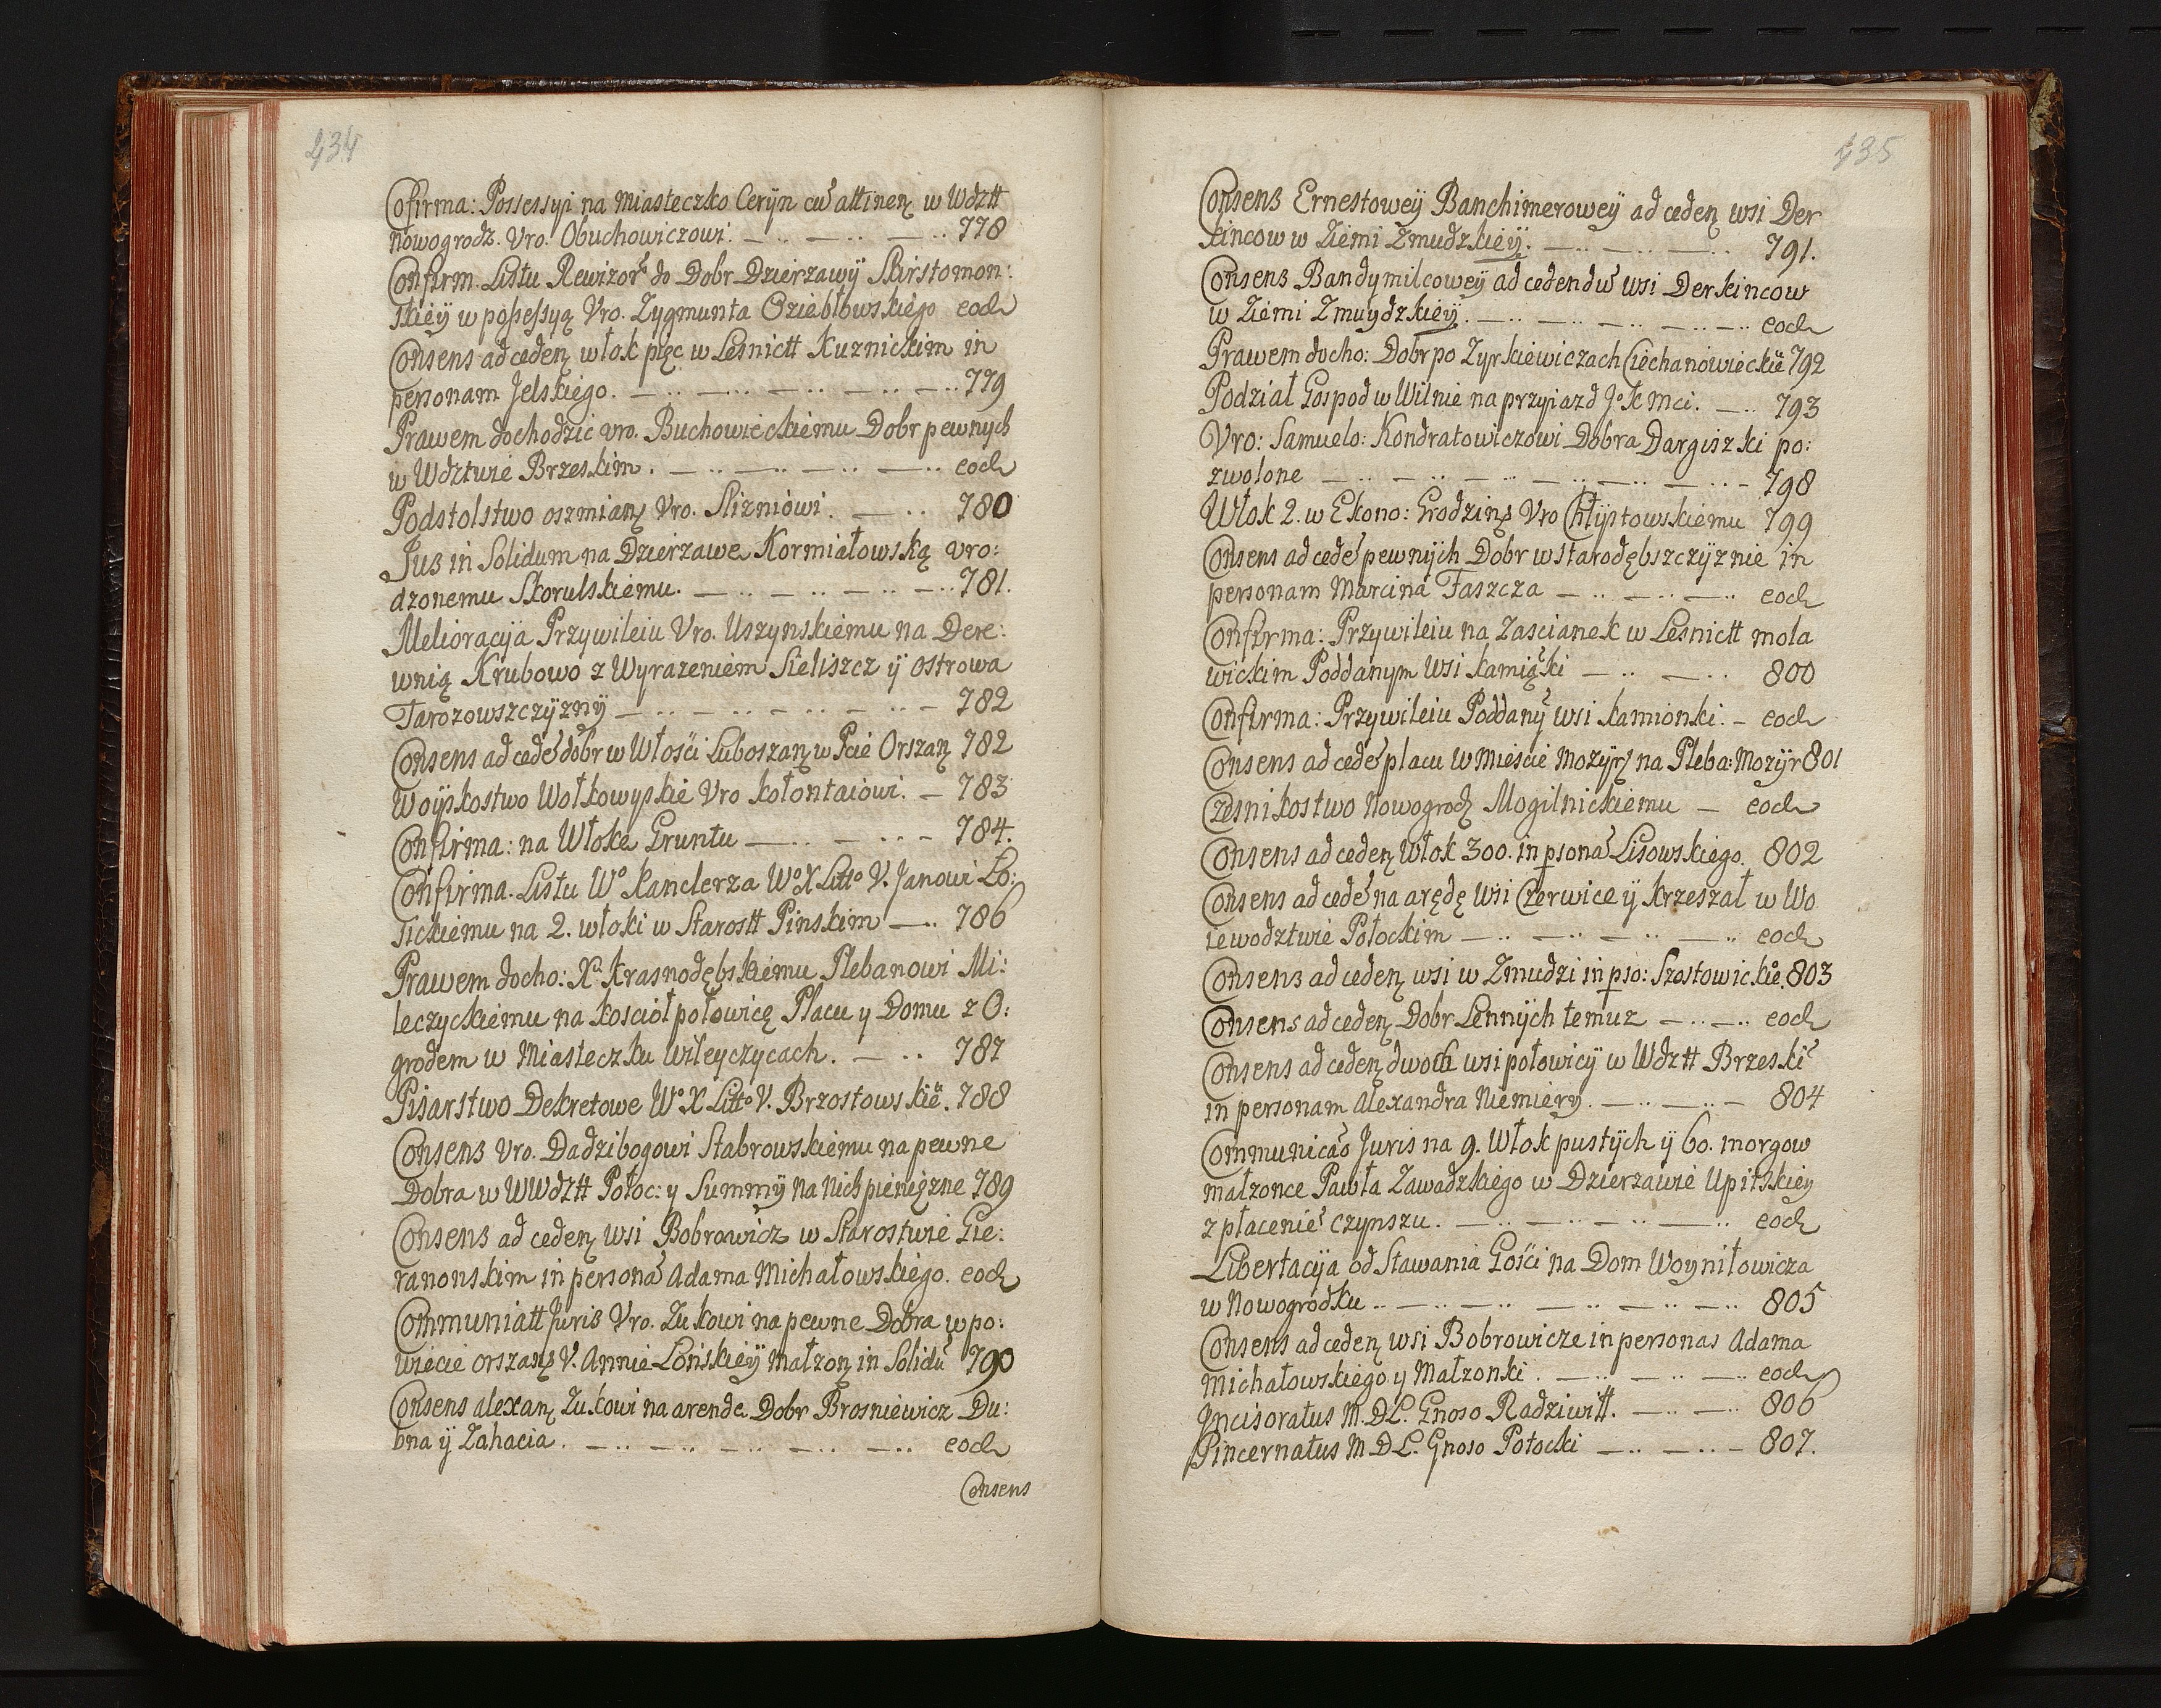 434
Cofirma: Possessyi na Miasteczko Ceryn cu attinen w Wdztt
nowogrodz. Vro. Obuchowiczowi. — .. — .. — .. 778
Confirm. Listu Rewizor do Dobr Dzierzawÿ Skirstomon:
skiëÿ w posessyą Vro. Zygmunta Oziebłowskiego eod
Consens ad ceden włok pięc w Lesnictt Kuznickim in
personam Jelskiego. — .. — .. — .. — .. — .. 779
Prawem dochodzic vro. Buchowieckiemu Dobr pewnych
w Wdztwie Brzeskim. — .. — .. — .. — .. eod
Podstolstwo oszmian Vro. Slizniowi. — .. 780
Jus in Solidum na Dzierzawe Kormiałowską vro:
dzonemu Skorulskiemu. — .. — .. — .. — .. 781.
Melioracÿa Przywileiu Vro. Uszynskiemu na Dere:
wnią Krubowo z Wyrazeniem Sieliszcz ÿ ostrowa
Tarozowszczÿzny — .. — .. — .. — .. — 782
Consens ad cede dobr w Włości Luboszan w Pcie Orszan 782
Woÿskostwo Wołkowyskie Vro kołontaiowi. — 783
Confirma: na Włoke Gruntu — .. — .. — 784.
Confirma. Listu Wo Kanclerza Wo X Litto V. Janowi Ło:
sickiemu na 2. włoki w Starostt Pinskim — .. 786
Prawem docho: Xu Krasnodębskiemu Plebanowi Mi:
leczyckiemu na kosciół połowicę Placu y Domu z O:
grodem w Miasteczku Wileyczycach. — .. 787
Pisarstwo Dekretowe Wo X Litto V. Brzostowskie. 788
Consens Vro. Dadzibogowi Stabrowskiemu na pewne
Dobra w WWdztt Połoc: y Summÿ na nich pieniężne 789
Consens ad ceden wsi Bobrowicz w Starostwie Gie:
ranonskim in persona Adama Michałowskiego. eod
Communiatt Juris Vro. Zukowi na pewne Dobra w po:
wiecie orszans V. Annie Łońskiëÿ małzon in Solidu 790
Consens alexan Zukowi na arende Dobr Brosniewicz Du:
bna ÿ Zahacia. — .. — .. — .. — .. — .. eod
Consens
435
Consens Ernestoweÿ Banchimeroweÿ ad ceden wsi Der
kincow w Ziemi Zmudzkiëÿ. — .. — .. — .. 791.
Consens Bandymilcoweÿ ad cedendu wsi Derkincow
w Ziemi Zmuydzkiëÿ. — .. — .. — .. — .. eod
Prawem docho: Dobr po Zyrkiewiczach Ciechanowiecku 792
Podział Gospod w Wilnie na przyiazd Jo K Mci. — .. 793
Vro: Samuelo: Kondratowiczowi Dobra Dargiszki po:
zwolone — .. — .. — .. — .. — .. — 798
Włok 2. w Ekono: Grodzins Vro Chłÿstowskiemu 799
Consens ad cede pewnÿch Dobr w starodębszczÿznie in
personam Marcina Taszcza — .. — .. — .. eod
Confirma: Przywileiu na Zascianek w Lesnictt mola
wickim Poddanym wsi kamiąski — .. — .. 800
Confirma: Przywileiu Poddany wsi kamionki. — eod
Consens ad cede placu w Miescie Mozÿrs na Pleba: Mozÿr 801
Czesnikostwo Nowogrod Mogilnickiemu — eod
Consens ad ceden Włok 300. in psona Lisowskiego. 802
Consens ad cede na arędę wsi Czerwice ÿ krzeszał w Wo
iewodztwie Połockim — .. — .. — .. — .. eod
Consens ad ceden wsi w Zmudzi in pso: Szostowickie. 803
Consens ad ceden Dobr Lennÿch temuz — .. — .. eod
Consens ad ceden dwoch wsi połowicÿ w Wdztt Brzeski
in personam Alexandra Niemiery. — .. — .. — 804
Communicao Juris na 9. Włok pustÿch ÿ 60. morgow
małzonce Pawła Zawadzkiego w Dzierzawie Upitskiey
z płacenie czynszu. — .. — .. — .. — .. eod
Libertacÿa od Stawania Gości na Dom Woyniłowicza
w Nowogrodku .. — .. — .. — .. — .. — .. 805
Consens ad ceden wsi Bobrowicze in personas Adama
Michałowskiego y Małzonki. — .. — .. — .. eod
Incisoratus M. D L. Gnoso Radziwiłł. — .. — .. 806
Pincernatus M D L. Gnoso Potocki — .. — .. — 807.